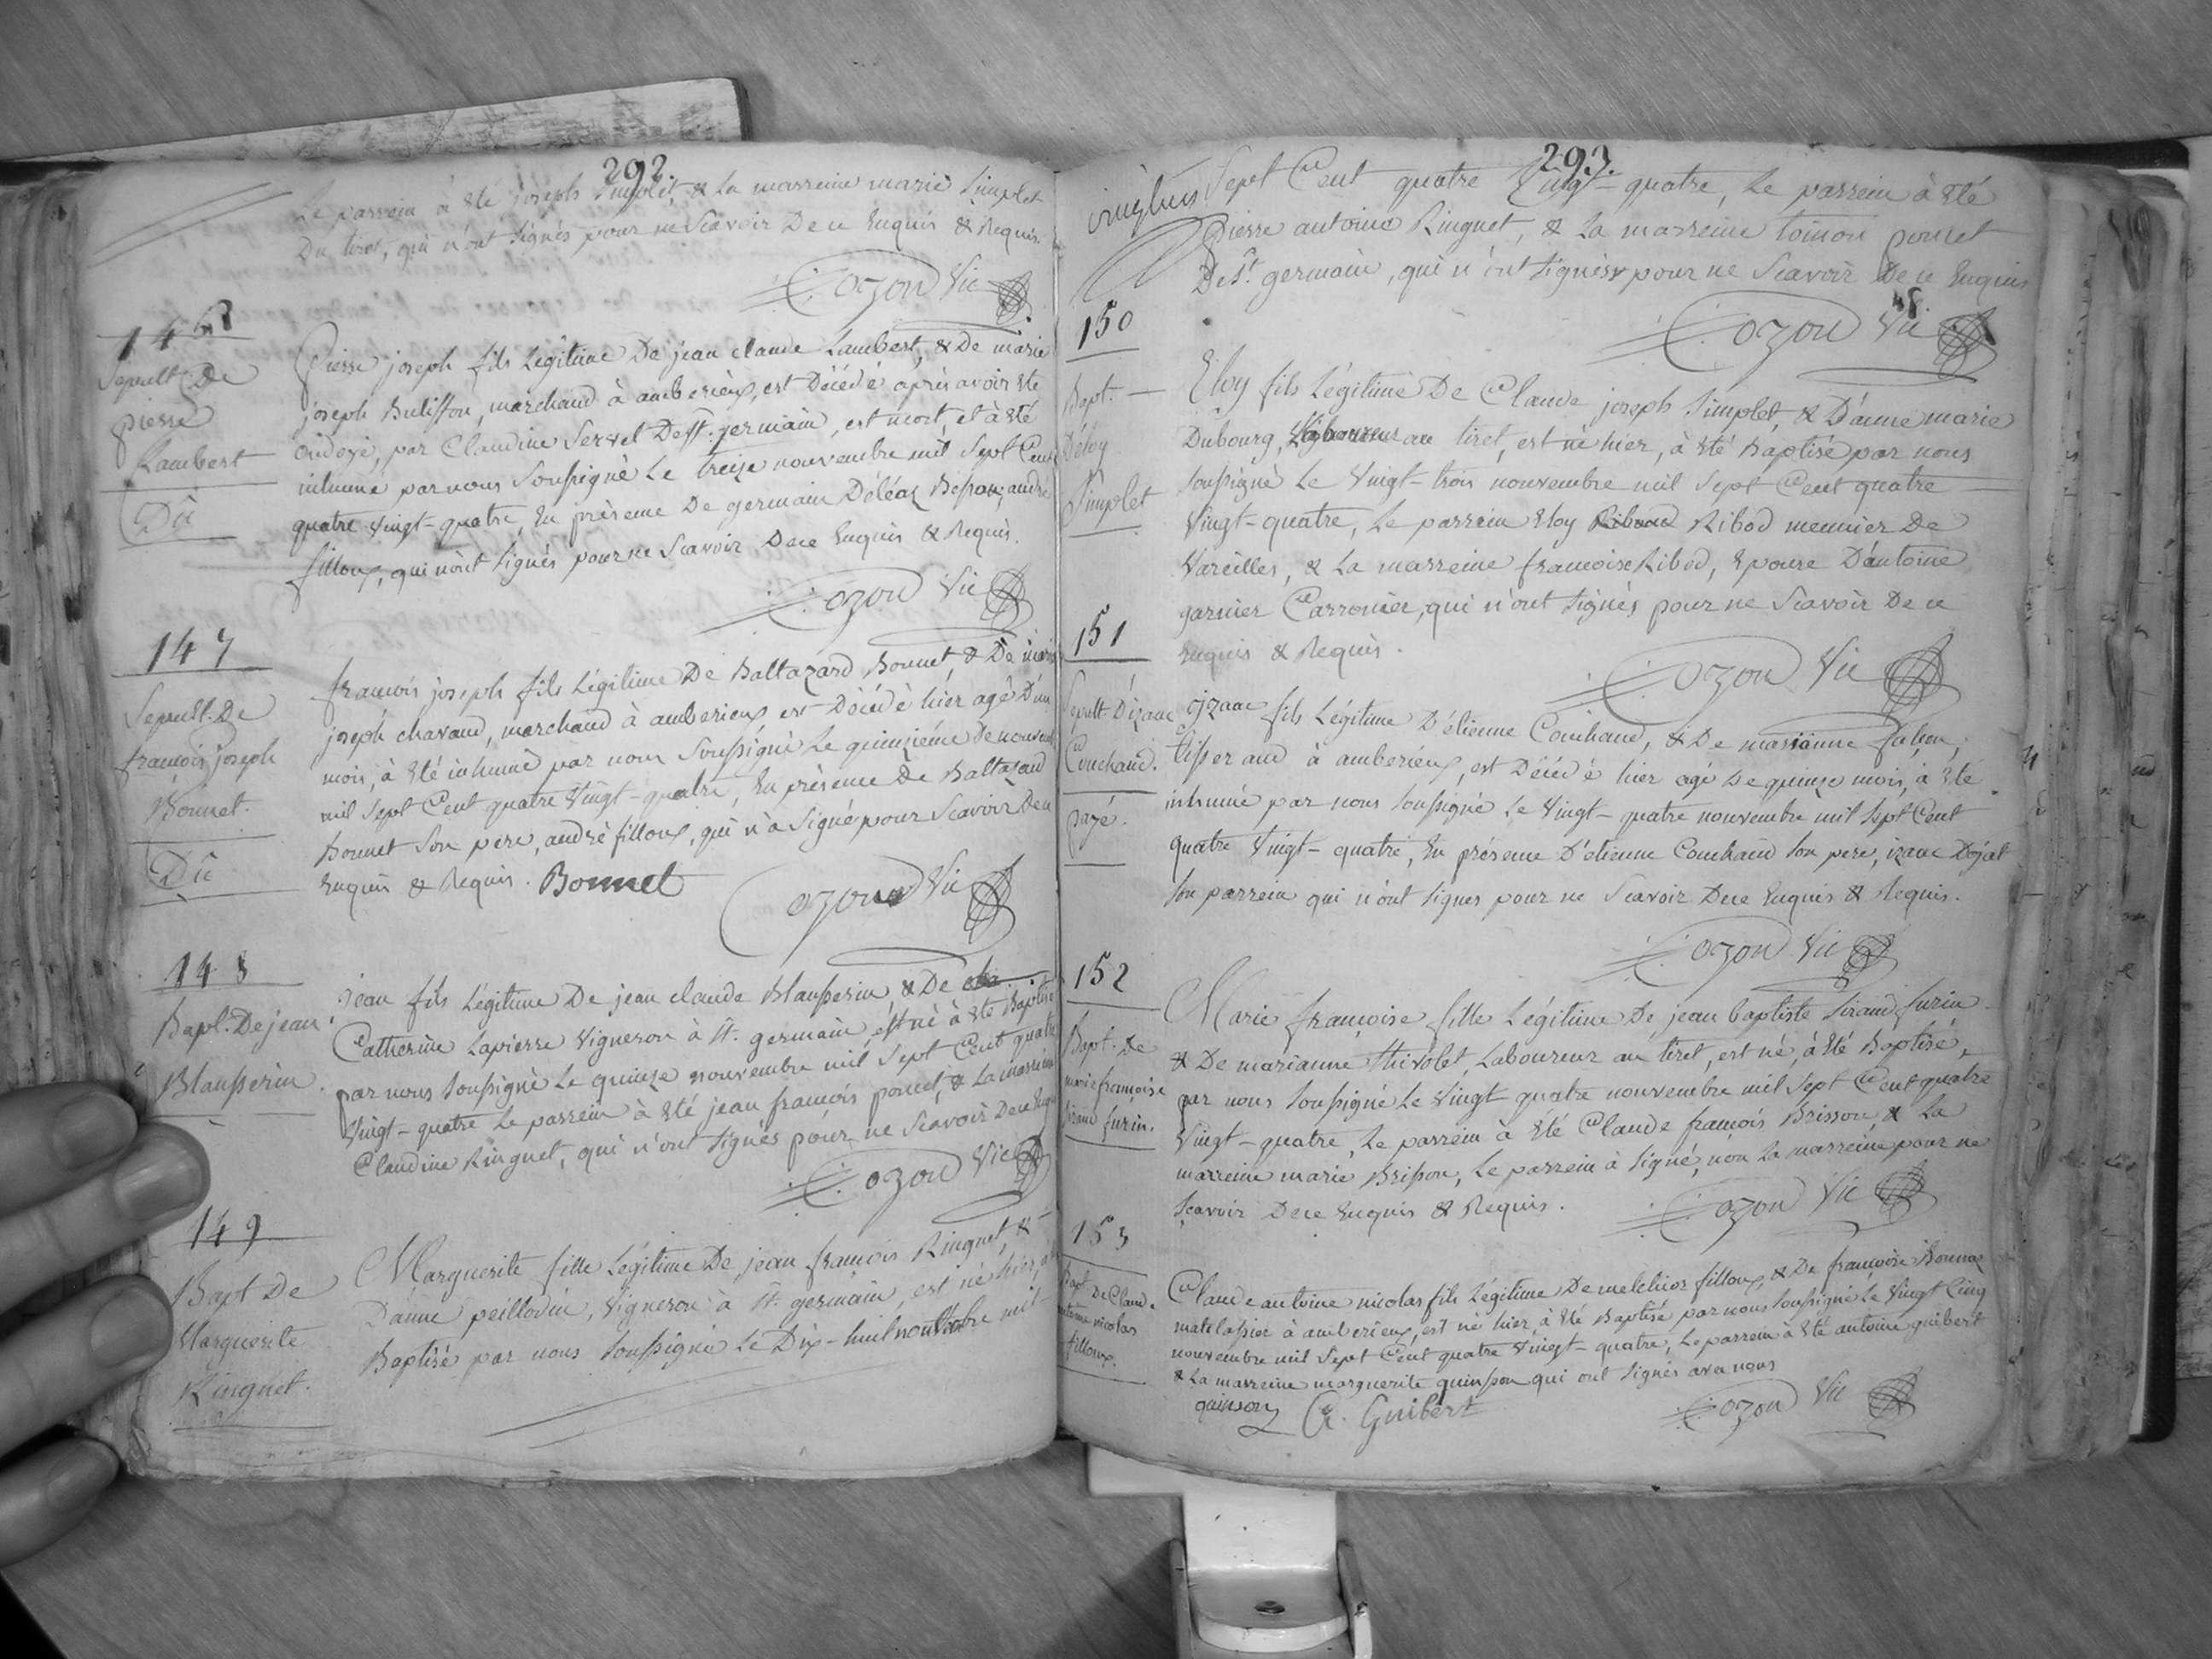 292.
Le parrein à été joseph Simplet, & La marreine marie Simplet
Du tiret, qui n'ont signés pour ne Scavoir De ce Enquis & Requis.
Cozon Vic
146
Sepult. De
pierre
Lambert
Dû
Pierre joseph fils Légitime De jean claude Lambert, & De marie
joseph Bulisson, marchand à amberieux, est Décédé après avoir été
ondoyé, par Claudine Servel De st. germain, est mort, et à été
inhumé par nous Soussigné Le treize nouvembre mil Sept Cent
quatre Vingt-quatre, En présence De germain Déléaz Besson, andré
filloux, qui n'ont signés pour ne Scavoir De ce Enquis & Requis.
Cozon Vic
147
Sepult. De
françois joseph
Bonnet.
Dû
françois joseph fils Légitime De Baltazard Bonnet, & De marie
joseph chavand, marchand à amberieux est Décédé hier agé D'un
mois, à été inhumé par nous Soussigné Le quinzième De nouvembre
mil Sept Cent quatre Vingt-quatre, En présence De Baltazard
Bonnet Son pere, andré filloux, qui n'a Signé pour Scavoir De ce
Enquis & Requis. Bonnet
Cozon Vic
148
Bapt. De jean
Blansserin.
jean fils Légitime De jean claude Blansserin, & De
Catherine Lapierre Vigneron à st. germain, est né à été Baptisé
par nous Soussigné Le quinze nouvembre mil Sept Cent quatre
Vingt-quatre Le parrein à été jean françois poncet, & La marreine
Claudine Ringuet, qui n'ont signés pour ne Scavoir De ce Enquis
Cozon Vic
149
Bapt De
Marguerite
Ringuet.
Marguerite fille Légitime De jean françois Ringuet, &
D'anne peillodin, Vigneron à st. germain, est né hier, à été
Baptisé par nous Soussigné Le Dix-huit nouvembre mil
293.
Sept Cent quatre Vingt-quatre, Le parrein à été
Pierre antoine Ringuet, & La marreine toinon poncet
De St. germain, qui n'ont signés pour ne Scavoir De ce Enquis
Cozon Vic
150
Bapt.
D'éloy
Simplet
Eloy fils Légitime De Claude joseph Simplet, & D'anne marie
Dubourg, Laboureur au tiret, est né hier, à été Baptisé par nous
Soussigné Le Vingt-trois nouvembre mil Sept Cent quatre
Vingt-quatre, Le parrein Eloy Ribod meunier De
Vareilles, & La marreine françoise Ribod, Epouse D'antoine
garnier Carronier, qui n'ont signés pour ne Scavoir De ce
Enquis & Requis.
Cozon Vic
151
Sepult D'izaac
Couchaud.
payé.
izaac fils Légitime D'étienne Couchaud, & De marianne
tisserand à amberieux, est Décédé hier agé De quinze mois, à été
inhumé par nous Soussigné Le Vingt-quatre nouvembre mil Sept Cent
quatre Vingt-quatre, En présence D'etienne Couchaud Son pere, izaac Dojat
Son parrein qui n'ont signes pour ne Scavoir De ce Enquis & Requis.
Cozon Vic
152
Bapt. De
marie françoise
Sirand furin.
Marie françoise fille Légitime De jean baptiste Sirand furin
& De marianne thivolet, Laboureur au tiret, est né, à été Baptisé,
par nous Soussigné Le Vingt quatre nouvembre mil Sept Cent quatre
Vingt-quatre, Le parrein à été Claude françois Brisson, & La
marreine marie Brisson, Le parrein à signé, non La marreine pour ne
Scavoir De ce Enquis & Requis.
Cozon Vic
153
Bapt De Claude
antoine nicolas
filloux.
Claude antoine nicolas fils Légitime De melchior filloux, & De françoise Bonnaz
matelassier à amberieux, est né hier, à été Baptisé par nous Soussigné Le Vingt Cinq
nouvembre mil Sept Cent quatre Vingt-quatre, Le parrein à été antoine guibert
& La marreine marguerite quinson qui ont signés avec nous
quinson A. Guibert
Cozon Vic